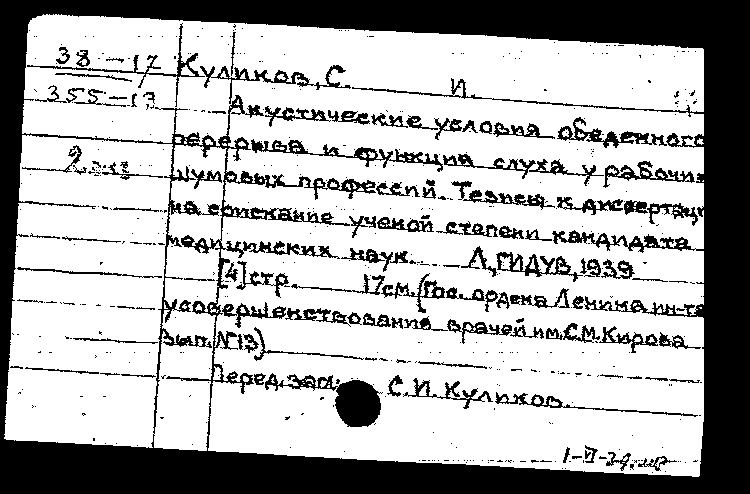 38-17
355-17
2 экз
Куликов, С. И.
Акустические условия обеденного
перерыва и функция слуха у рабочих
шумовых профессий. Тезисы к диссертаци
на соискание ученой степени кандидата
медицинских наук. Л., ГИДУВ, 1939
[4] стр. 17см. (Гос. ордена Ленина ин-т
усовершенствования врачей им. С.М. Кирова
Вып. №13)
Перед. загл: С.И. Куликов.